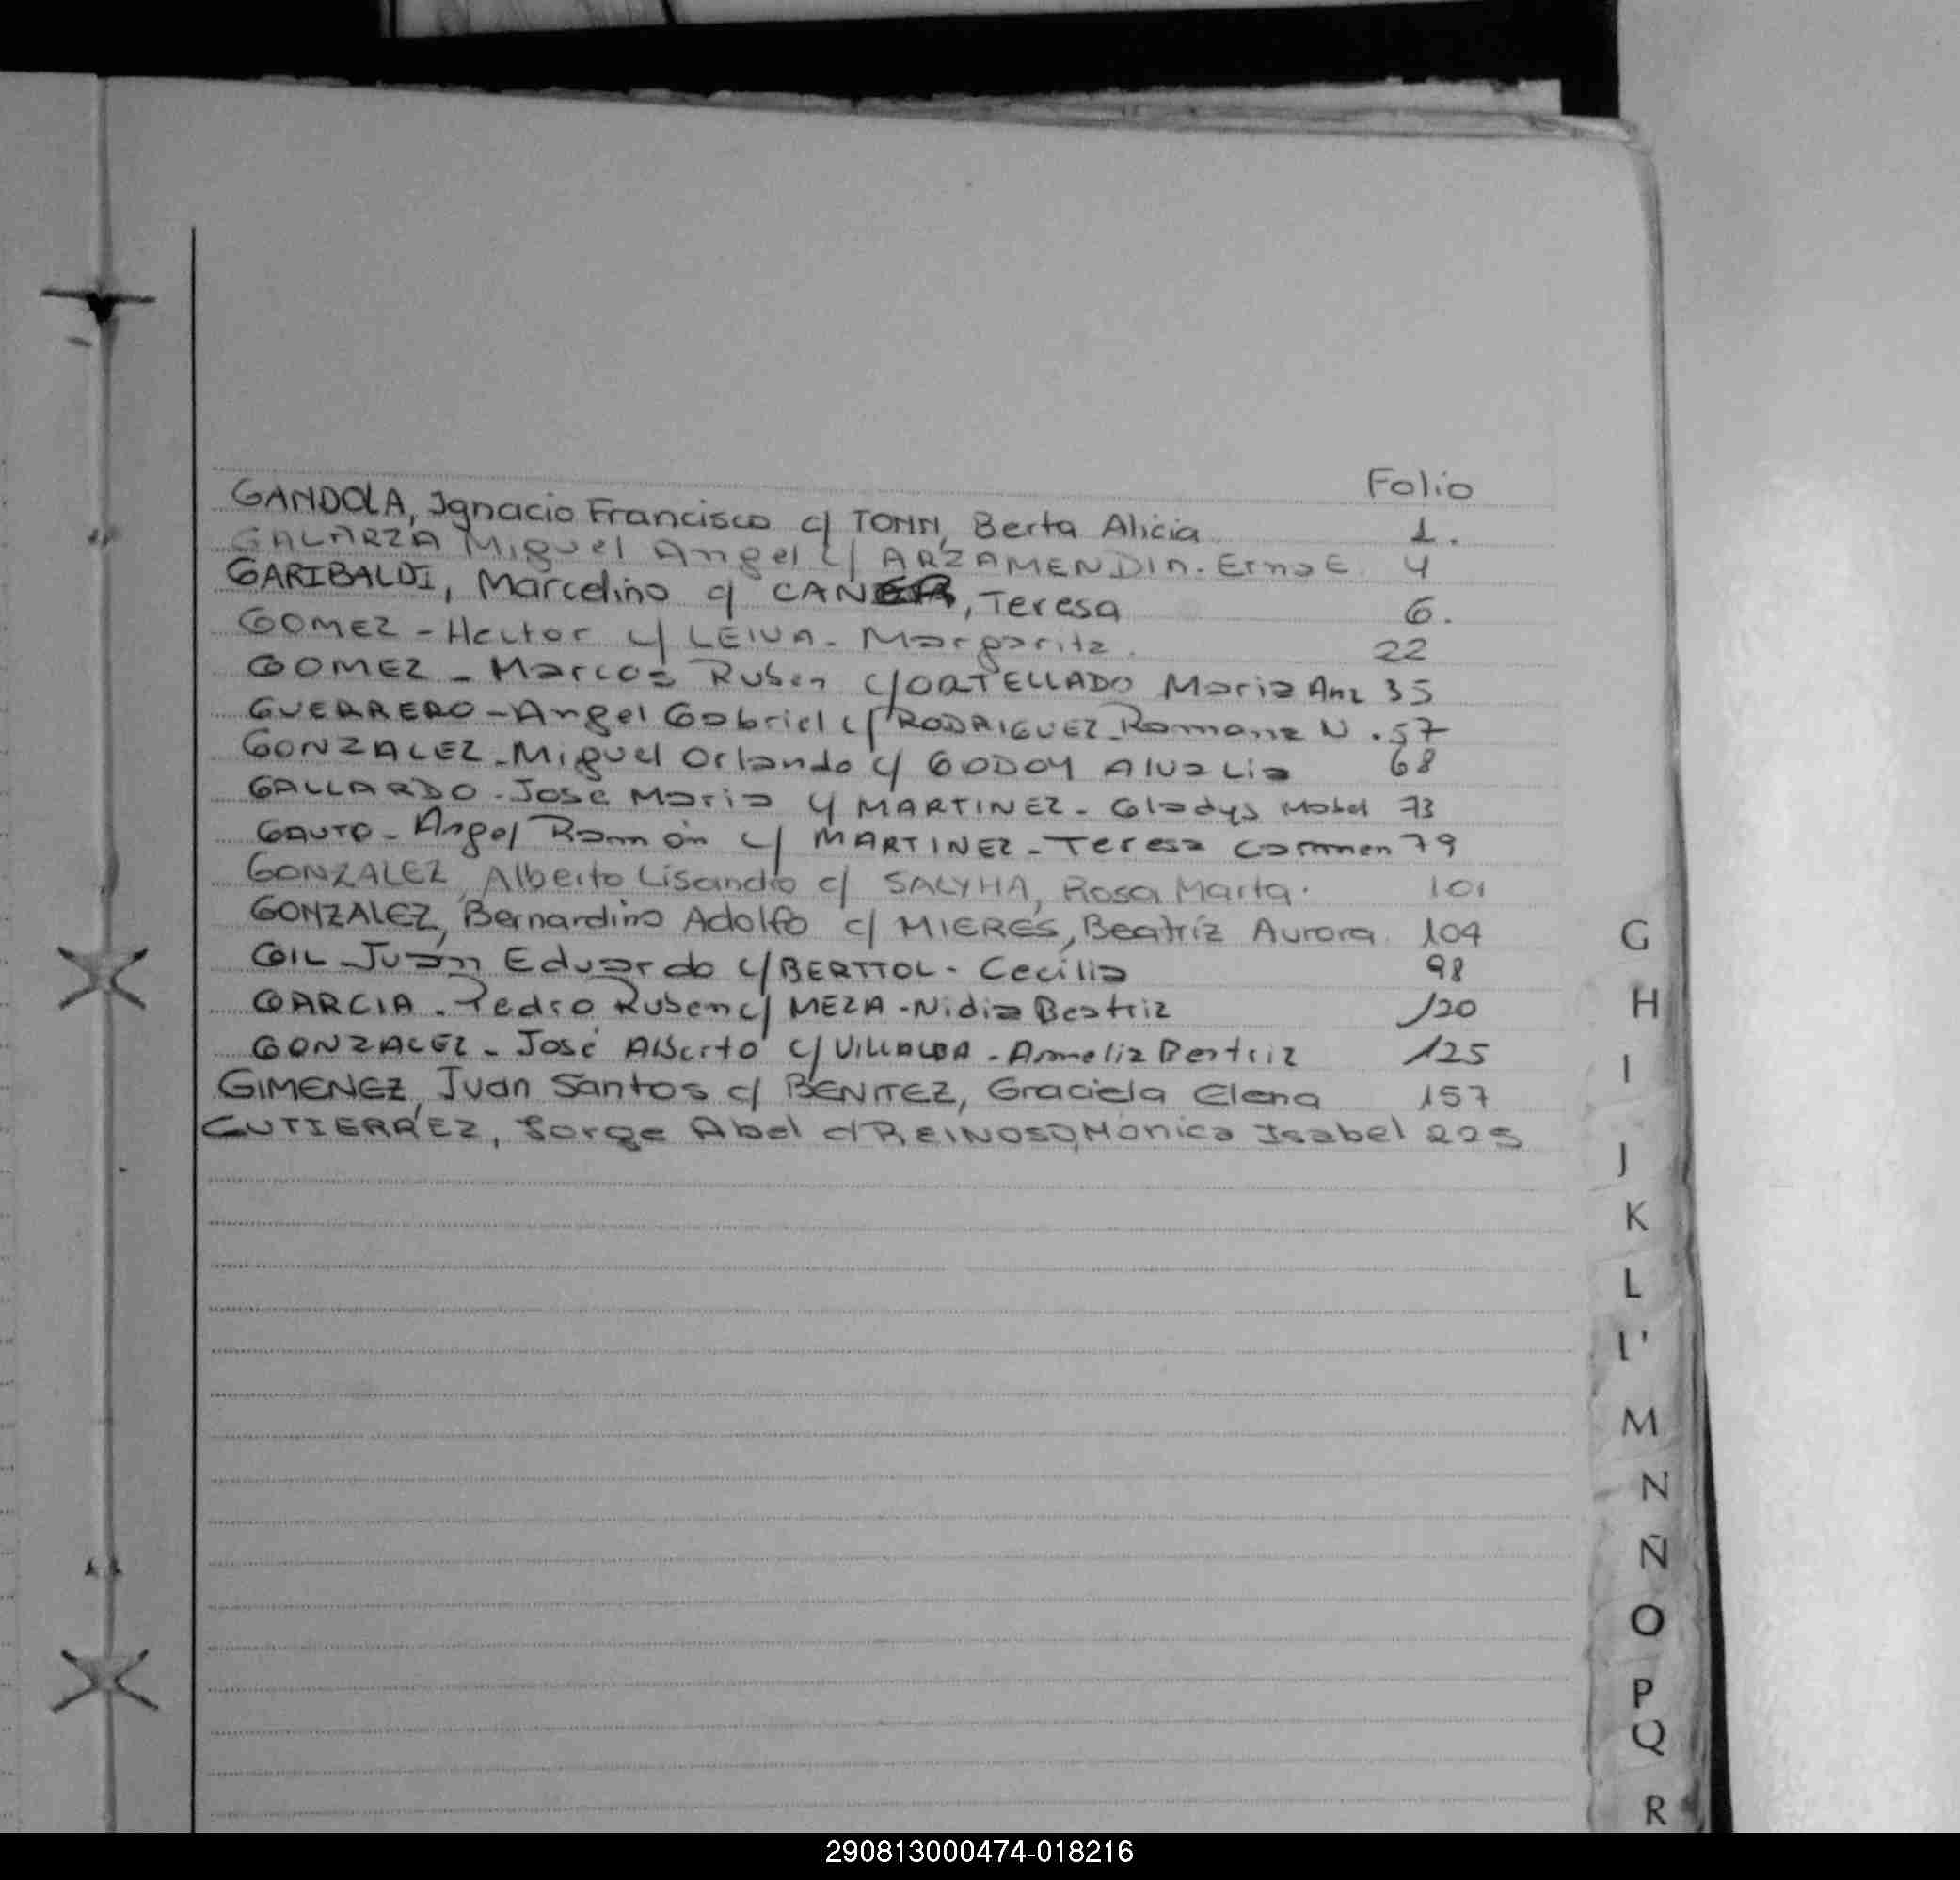 Folio
GANDOLA, Ignacio Francisco c/ TONN, Berta Alicia 1.
GALARZA Miguel Angel c/ ARZAMENDIA. Erna E. 4
GARIBALDI, Marcelino c/ CANER, Teresa 6.
GOMEZ - Hector c/ LEIVA - Margarita. 22
GOMEZ - Marcos Ruben c/ ORTELLADO Maria Ana 35
GUERRERO - Angel Gabriel c/ RODRIGUEZ - Romana N. 57
GONZALEZ - Miguel Orlando c/ GODOY 68
GALLARDO - Jose Maria c/ MARTINEZ - Gladys Mabel 73
GAUTO - Angel Ramón c/ MARTINEZ - Teresa Carmen 79
GONZALEZ, Alberto Lisandro c/ SALYHA, Rosa Marta. 101
GONZALEZ, Bernardino Adolfo c/ MIERES, Beatríz Aurora. 104
GIL - Juan Eduardo c/ BERTTOL - Cecilia 98
GARCIA - Pedro Ruben c/ MEZA - Nidia Beatriz 120
GONZALEZ - José Alberto c/ VILLALBA - Amelia Beatriz 125
GIMENEZ, Juan Santos c/ BENITEZ, Graciela Elena 157
GUTIERREZ, Jorge Abel c/ REINOSO, Monica Isabel 225
G
H
I
J
K
L
L'
M
N
Ñ
O
P
Q
R
290813000474-018216